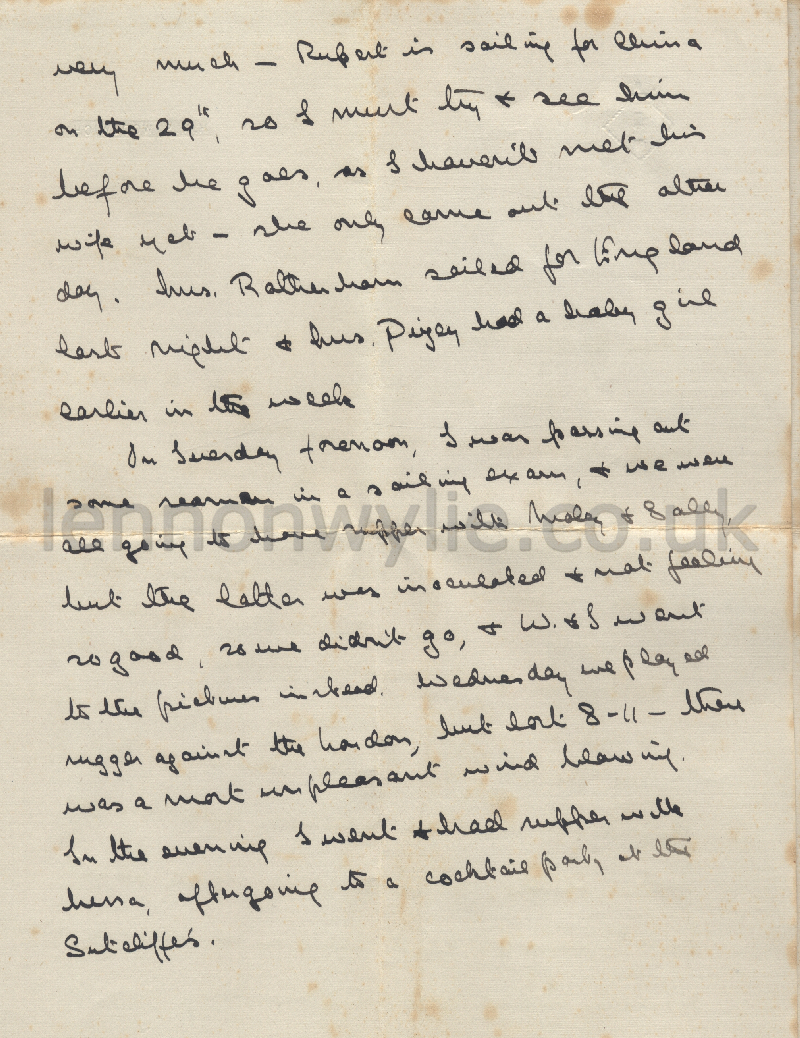 very much – Rupert is sailing for China
on the 29th, so I must try & see him
before he goes, as I haven't met his
wife yet – she only came out the other
day. Mrs. Rottenham sailed for England
last night & Mrs. Pizey had a baby girl
earlier in the week
On Tuesday forenoon, I was passing out
some seaman in a sailing exam, & we were
all going to have supper with & Sally,
but the latter was inoculated & not feeling
so good, so we didn't go, & W. & I went
to the pictures instead. Wednesday we played
rugger against the London, but lost 8-11 – there
was a most unpleasant wind blowing.
In the evening I went & had supper with
, after going to a cocktail party at the
Sutcliffes.
lennonwylie.co.uk